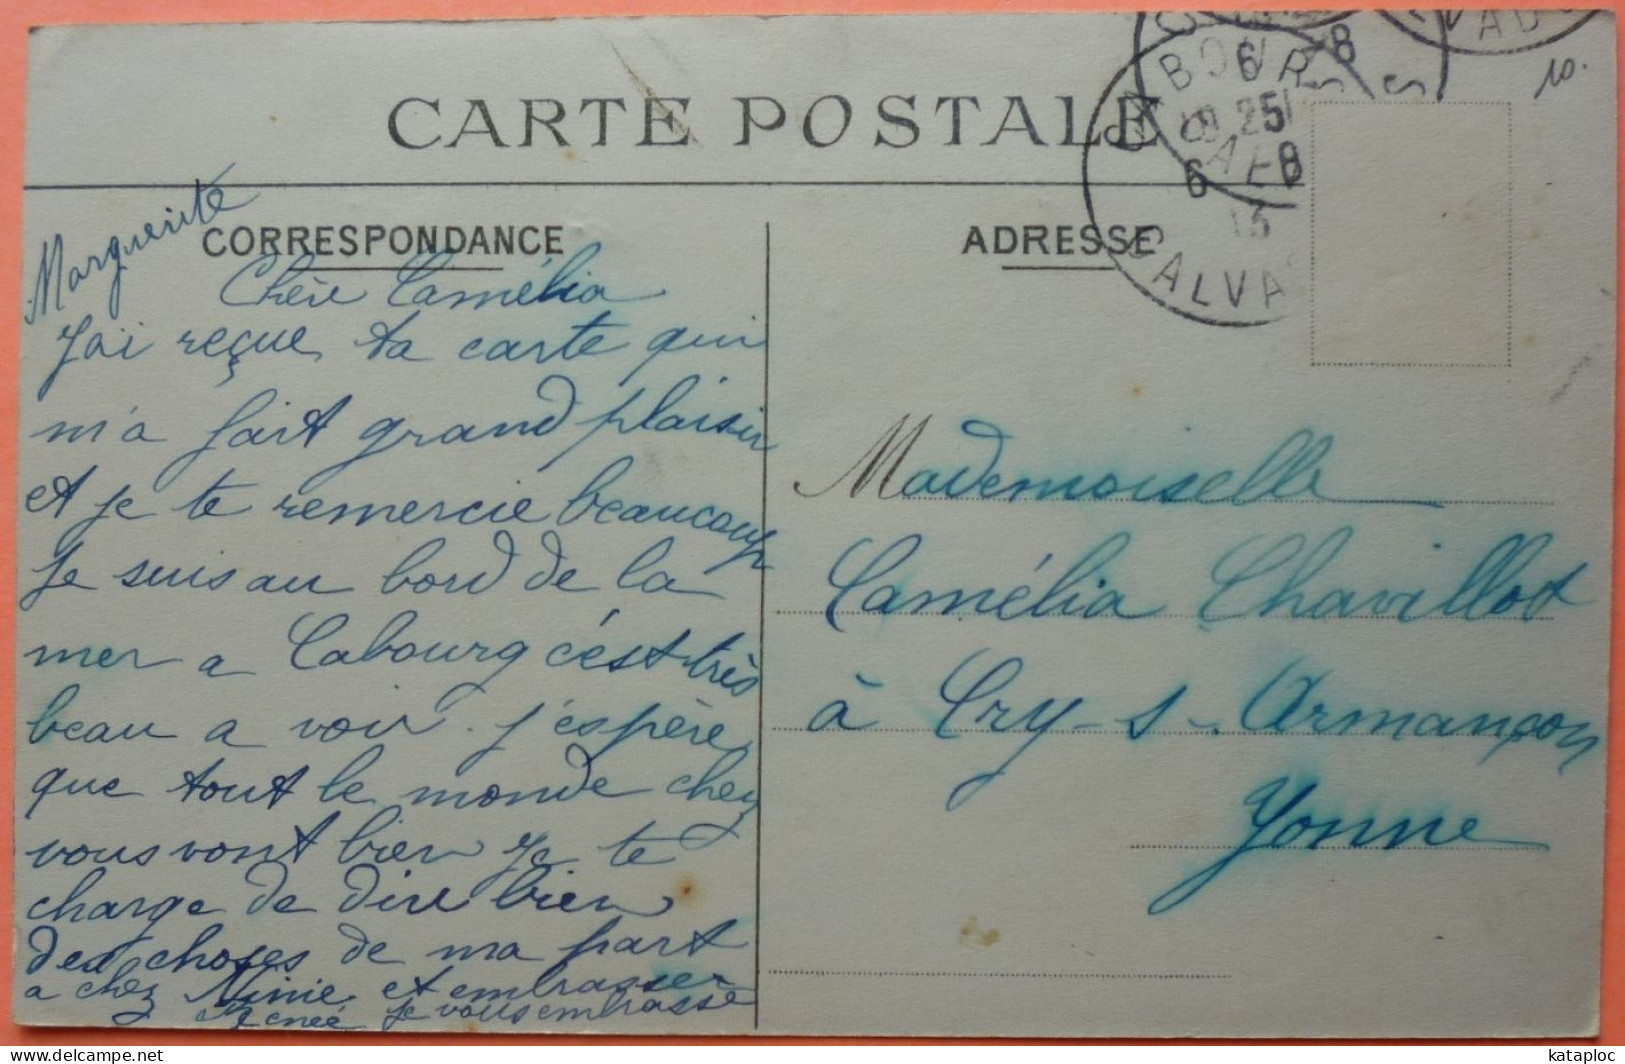 CARTE POSTALE
10.
CABOURG
19 25
6 8
13
CALVA
Marguerite
CORRESPONDANCE
Chère Camélia
J'ai reçue ta carte qui
m'a fait grand plaisir
et je te remercie beaucoup
Je suis au bord de la
mer a Cabourg c'est très
beau a voir. j'espère
que tout le monde chez
vous vont bien Je te
charge de dire bien
des choses de ma part
a chez Ninie et embrasser
Renée je vous embrasse
ADRESSE
Mademoiselle
Camélia Chavillot
à Cry-s-Armançon
Yonne
delcampe.net
kataploc